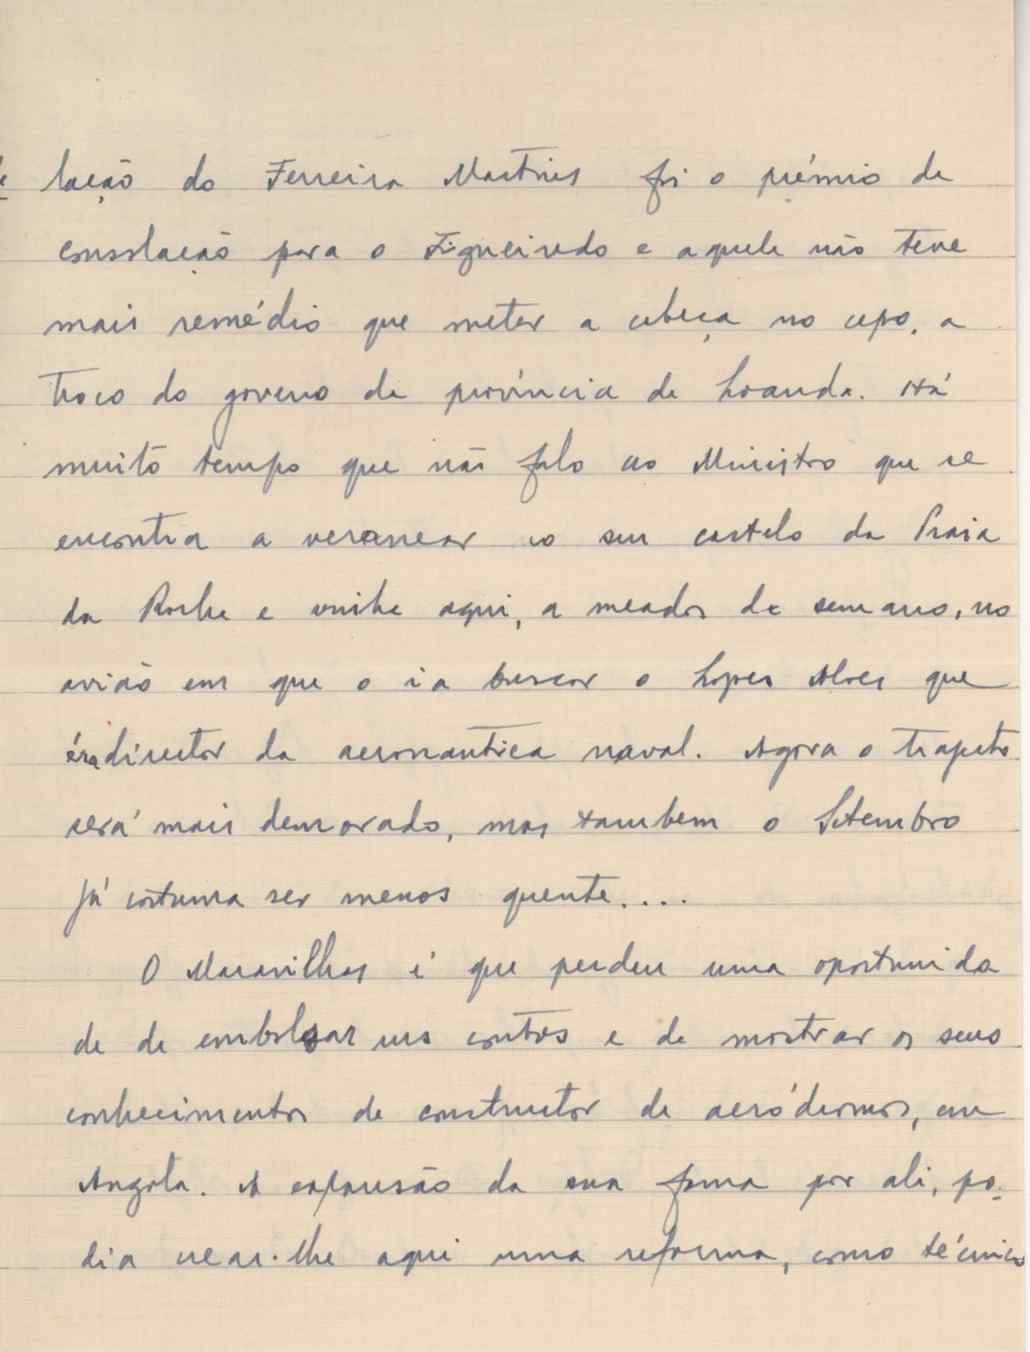 lação do Ferreira Martins foi o prémio de
consolação para o Figueiredo e aquele não teve
mais remédio que meter a cabeça no cepo, a
troco do governo da província de Loanda. Há
muito tempo que não falo ao Ministro que se
encontra a veranear no seu castelo da Praia
da Rocha e vinha aqui, a meados de semana, no
avião em que o ia buscar o Lopes Alves que
éra director da aeronautica naval. Agora o trajecto
será mais demorado, mas tambem o Setembro
já costuma ser menos quente....
O Maravilhas é que perdeu uma oportunida
de de embolsar uns contos e de mostrar os seus
conhecimentos de constructor de aeródromos, em
Angola. A expansão da sua fama por ali, po-
dia crear-lhe aqui uma reforma, como técnico